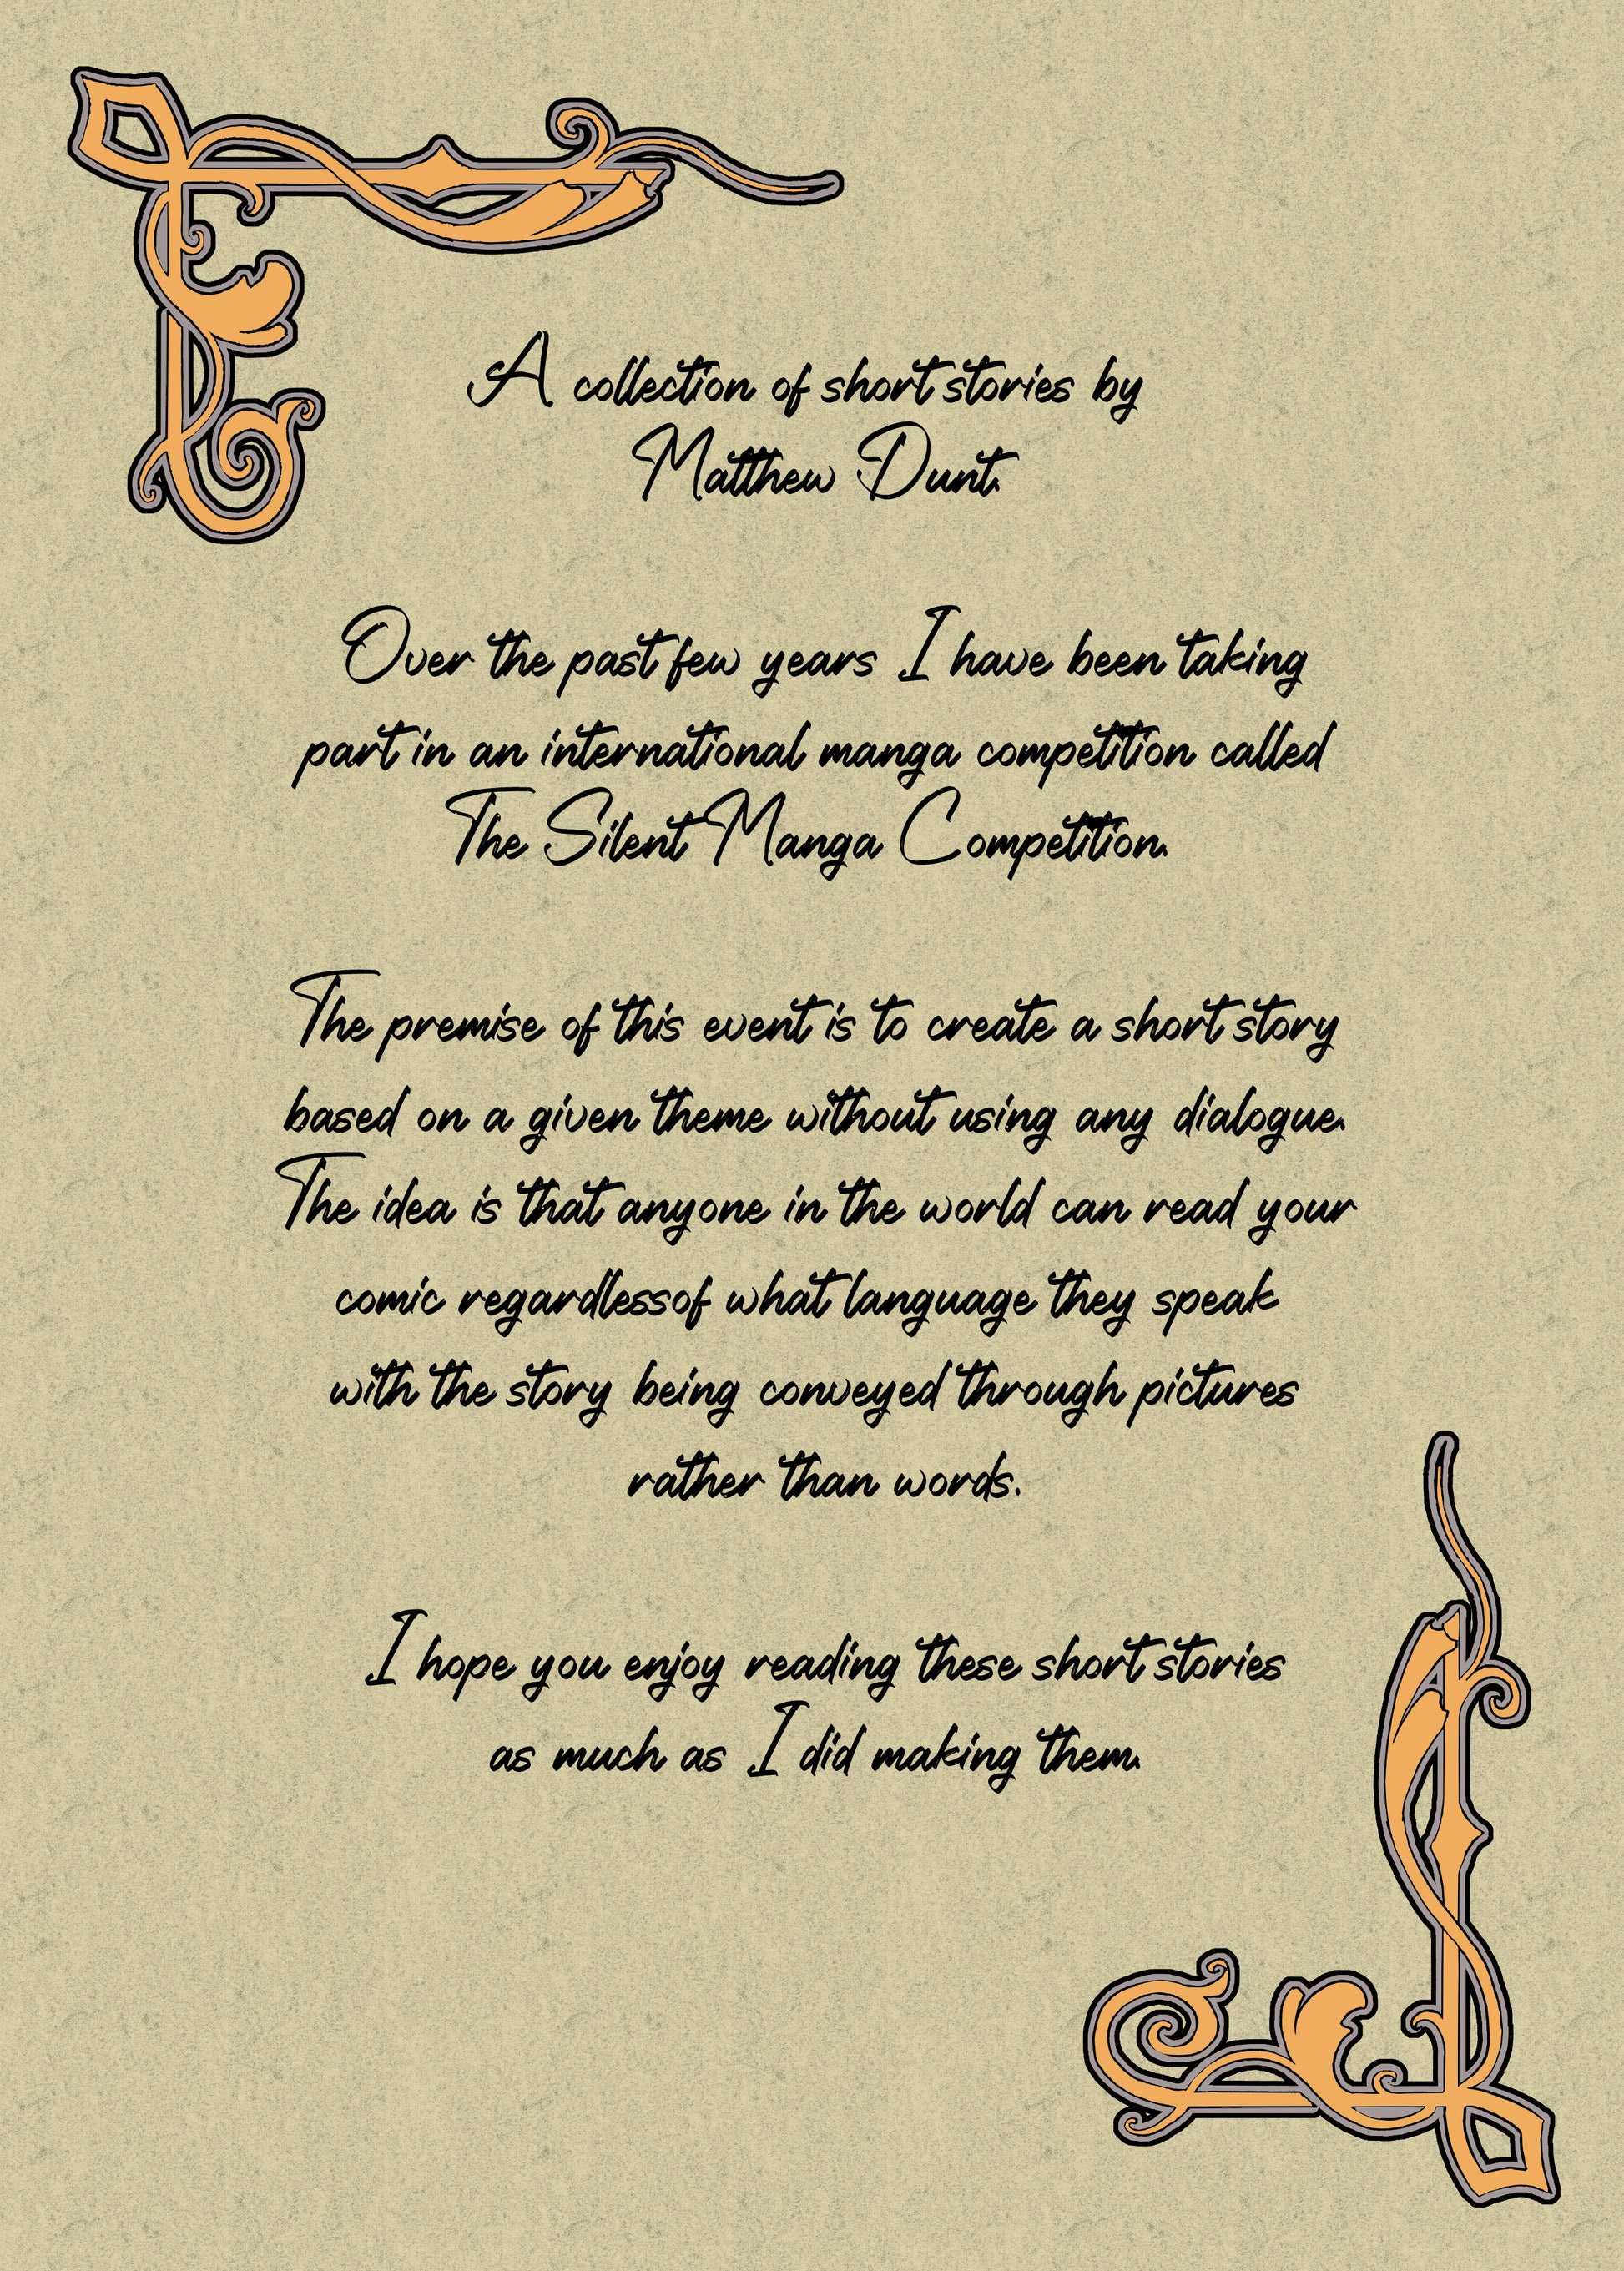 A collection of short stories by
Matthew Dunt.
Over the past few years I have been taking
part in an international manga competition called
The Silent Manga Competition.
The premise of this event is to create a short story
based on a given theme without using any dialogue.
The idea is that anyone in the world can read your
comic regardlessof what language they speak
with the story being conveyed through pictures
rather than words.
I hope you enjoy reading these short stories
as much as I did making them.